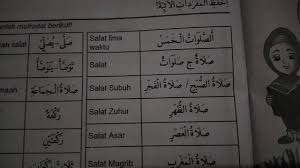 اِحْفَظْ المُفْرَدَاتِ الآتِيَةَ!
mufradat berikut!
صَلَّى - يُصَلِّي
Salat lima waktu
اَلصَّلَوَاتُ الْخَمْسُ
تَوَضَّأَ - يَتَوَضَّأُ
Salat
صَلَاةٌ ج صَلَوَاتٌ
صَلَاةُ الْجَمَاعَةِ
Salat Subuh
صَلَاةُ الصُّبْحِ / صَلَاةُ الْفَجْرِ
رَكْعَةٌ
Salat Zuhur
صَلَاةُ الظُّهْرِ
رَكْعَتَيْنِ
Salat Asar
صَلَاةُ الْعَصْرِ
Salat Magrib
صَلَاةُ الْمَغْرِبِ